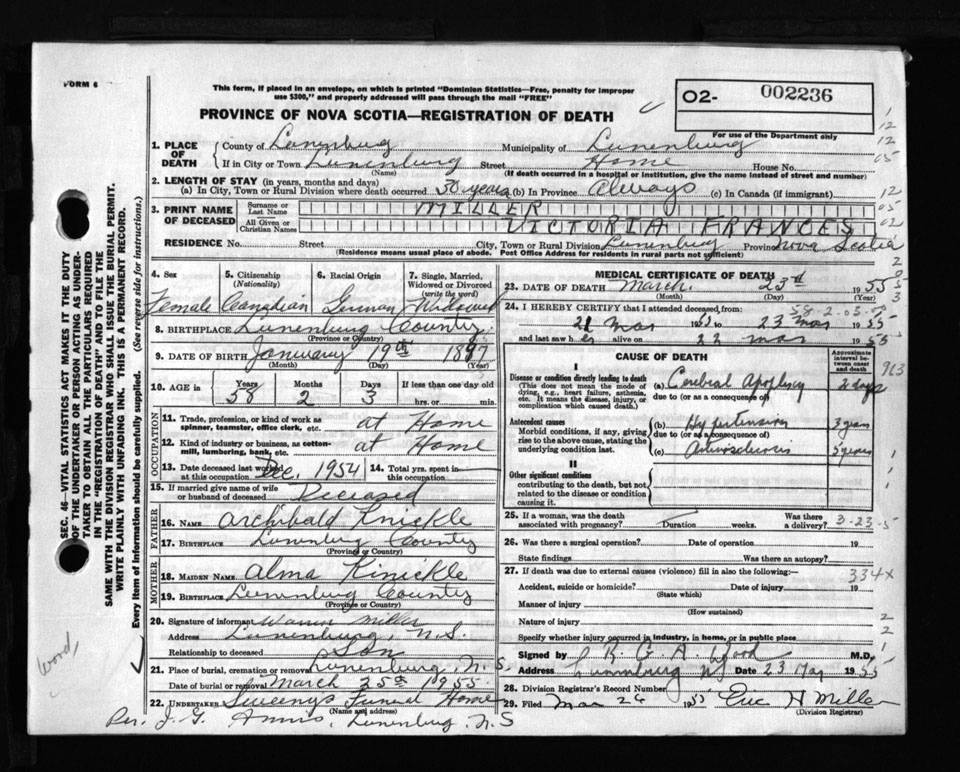 FORM 6
This form, if placed in an envelope, on which is printed "Dominion Statistics—Free, penalty for improper
use $300," and properly addressed will pass through the mail "FREE"
PROVINCE OF NOVA SCOTIA—REGISTRATION OF DEATH
02- 002236
For use of the Department only
1. PLACE OF DEATH
County of Lunenburg Municipality of Lunenburg
If in City or Town Lunenburg Street Home House No.
(Name) (If death occurred in a hospital or institution, give the name instead of street and number)
2. LENGTH OF STAY (in years, months and days)
(a) In City, Town or Rural Division where death occurred 50 years (b) In Province Always (c) In Canada (if immigrant)
3. PRINT NAME OF DECEASED
Surname or Last Name MILLER
All Given or Christian Names VICTORIA FRANCES
RESIDENCE No. Street City, Town or Rural Division Lunenburg Province Nova Scotia
(Residence means usual place of abode. Post Office Address for residents in rural parts not sufficient)
4. Sex Female
5. Citizenship (Nationality) Canadian
6. Racial Origin German
7. Single, Married, Widowed or Divorced (write the word) Widowed
8. BIRTHPLACE Lunenburg County
(Province or Country)
9. DATE OF BIRTH January 19th 1897
(Month) (Day) (Year)
10. AGE in Years 58 Months 2 Days 3 If less than one day old
hrs. or min.
OCCUPATION
11. Trade, profession, or kind of work as spinner, teamster, office clerk, etc. at Home
12. Kind of industry or business, as cotton-mill, lumbering, bank, etc. at Home
13. Date deceased last worked at this occupation Dec. 1954
14. Total yrs. spent in this occupation
15. If married give name of wife or husband of deceased Deceased
FATHER
16. NAME Archibald Knickle
17. BIRTHPLACE Lunenburg County
(Province or Country)
MOTHER
18. MAIDEN NAME Alma Kinickle
19. BIRTHPLACE Lunenburg County
(Province or Country)
20. Signature of informant Warren Miller
Address Lunenburg, N.S.
Relationship to deceased Son
21. Place of burial, cremation or removal Lunenburg, N.S.
Date of burial or removal March 25th 1955
22. UNDERTAKER Sweeny's Funeral Home
(Name and address)
Per. J. G. Lunenburg, N.S
MEDICAL CERTIFICATE OF DEATH
23. DATE OF DEATH March 23rd 1955
(Month) (Day) (Year)
24. I HEREBY CERTIFY that I attended deceased from:
21 Mar 1955 to 23 Mar 1955
and last saw her alive on 22 Mar 1955
CAUSE OF DEATH
Approximate interval between onset and death
I
Disease or condition directly leading to death
(This does not mean the mode of dying, e.g., heart failure, asthenia, etc. It means the disease, injury, or complication which caused death.)
(a) Cerebral Apoplexy 2 days
due to (or as a consequence of)
Antecedent causes
Morbid conditions, if any, giving rise to the above cause, stating the underlying condition last.
(b) Hypertension 3 years
due to (or as a consequence of)
(c) Arteriosclerosis 5 years
II
Other significant conditions
contributing to the death, but not related to the disease or condition causing it.
25. If a woman, was the death associated with pregnancy? Duration weeks. Was there a delivery?
3-23-5
26. Was there a surgical operation? Date of operation 19
State findings Was there an autopsy?
27. If death was due to external causes (violence) fill in also the following:—
334x
Accident, suicide or homicide? Date of injury 19
(State which)
Manner of injury
(How sustained)
Nature of injury
Specify whether injury occurred in industry, in home, or in public place
Signed by G A Wood M.D.
Address Lunenburg NS Date 23 Mar 1955
28. Division Registrar's Record Number
29. Filed Mar 26 1955 Eric H Miller
(Division Registrar)
SEC. 46—VITAL STATISTICS ACT MAKES IT THE DUTY
OF THE UNDERTAKER OR PERSON ACTING AS UNDER-
TAKER TO OBTAIN ALL THE PARTICULARS REQUIRED
IN THE "REGISTRATION OF DEATH" AND TO FILE THE
SAME WITH THE DIVISION REGISTRAR WHO SHALL ISSUE THE BURIAL PERMIT.
WRITE PLAINLY WITH UNFADING INK. THIS IS A PERMANENT RECORD.
Every item of information should be carefully supplied. (See reverse side for instructions.)
Wood,
1
12
12
05
12
05
02
963